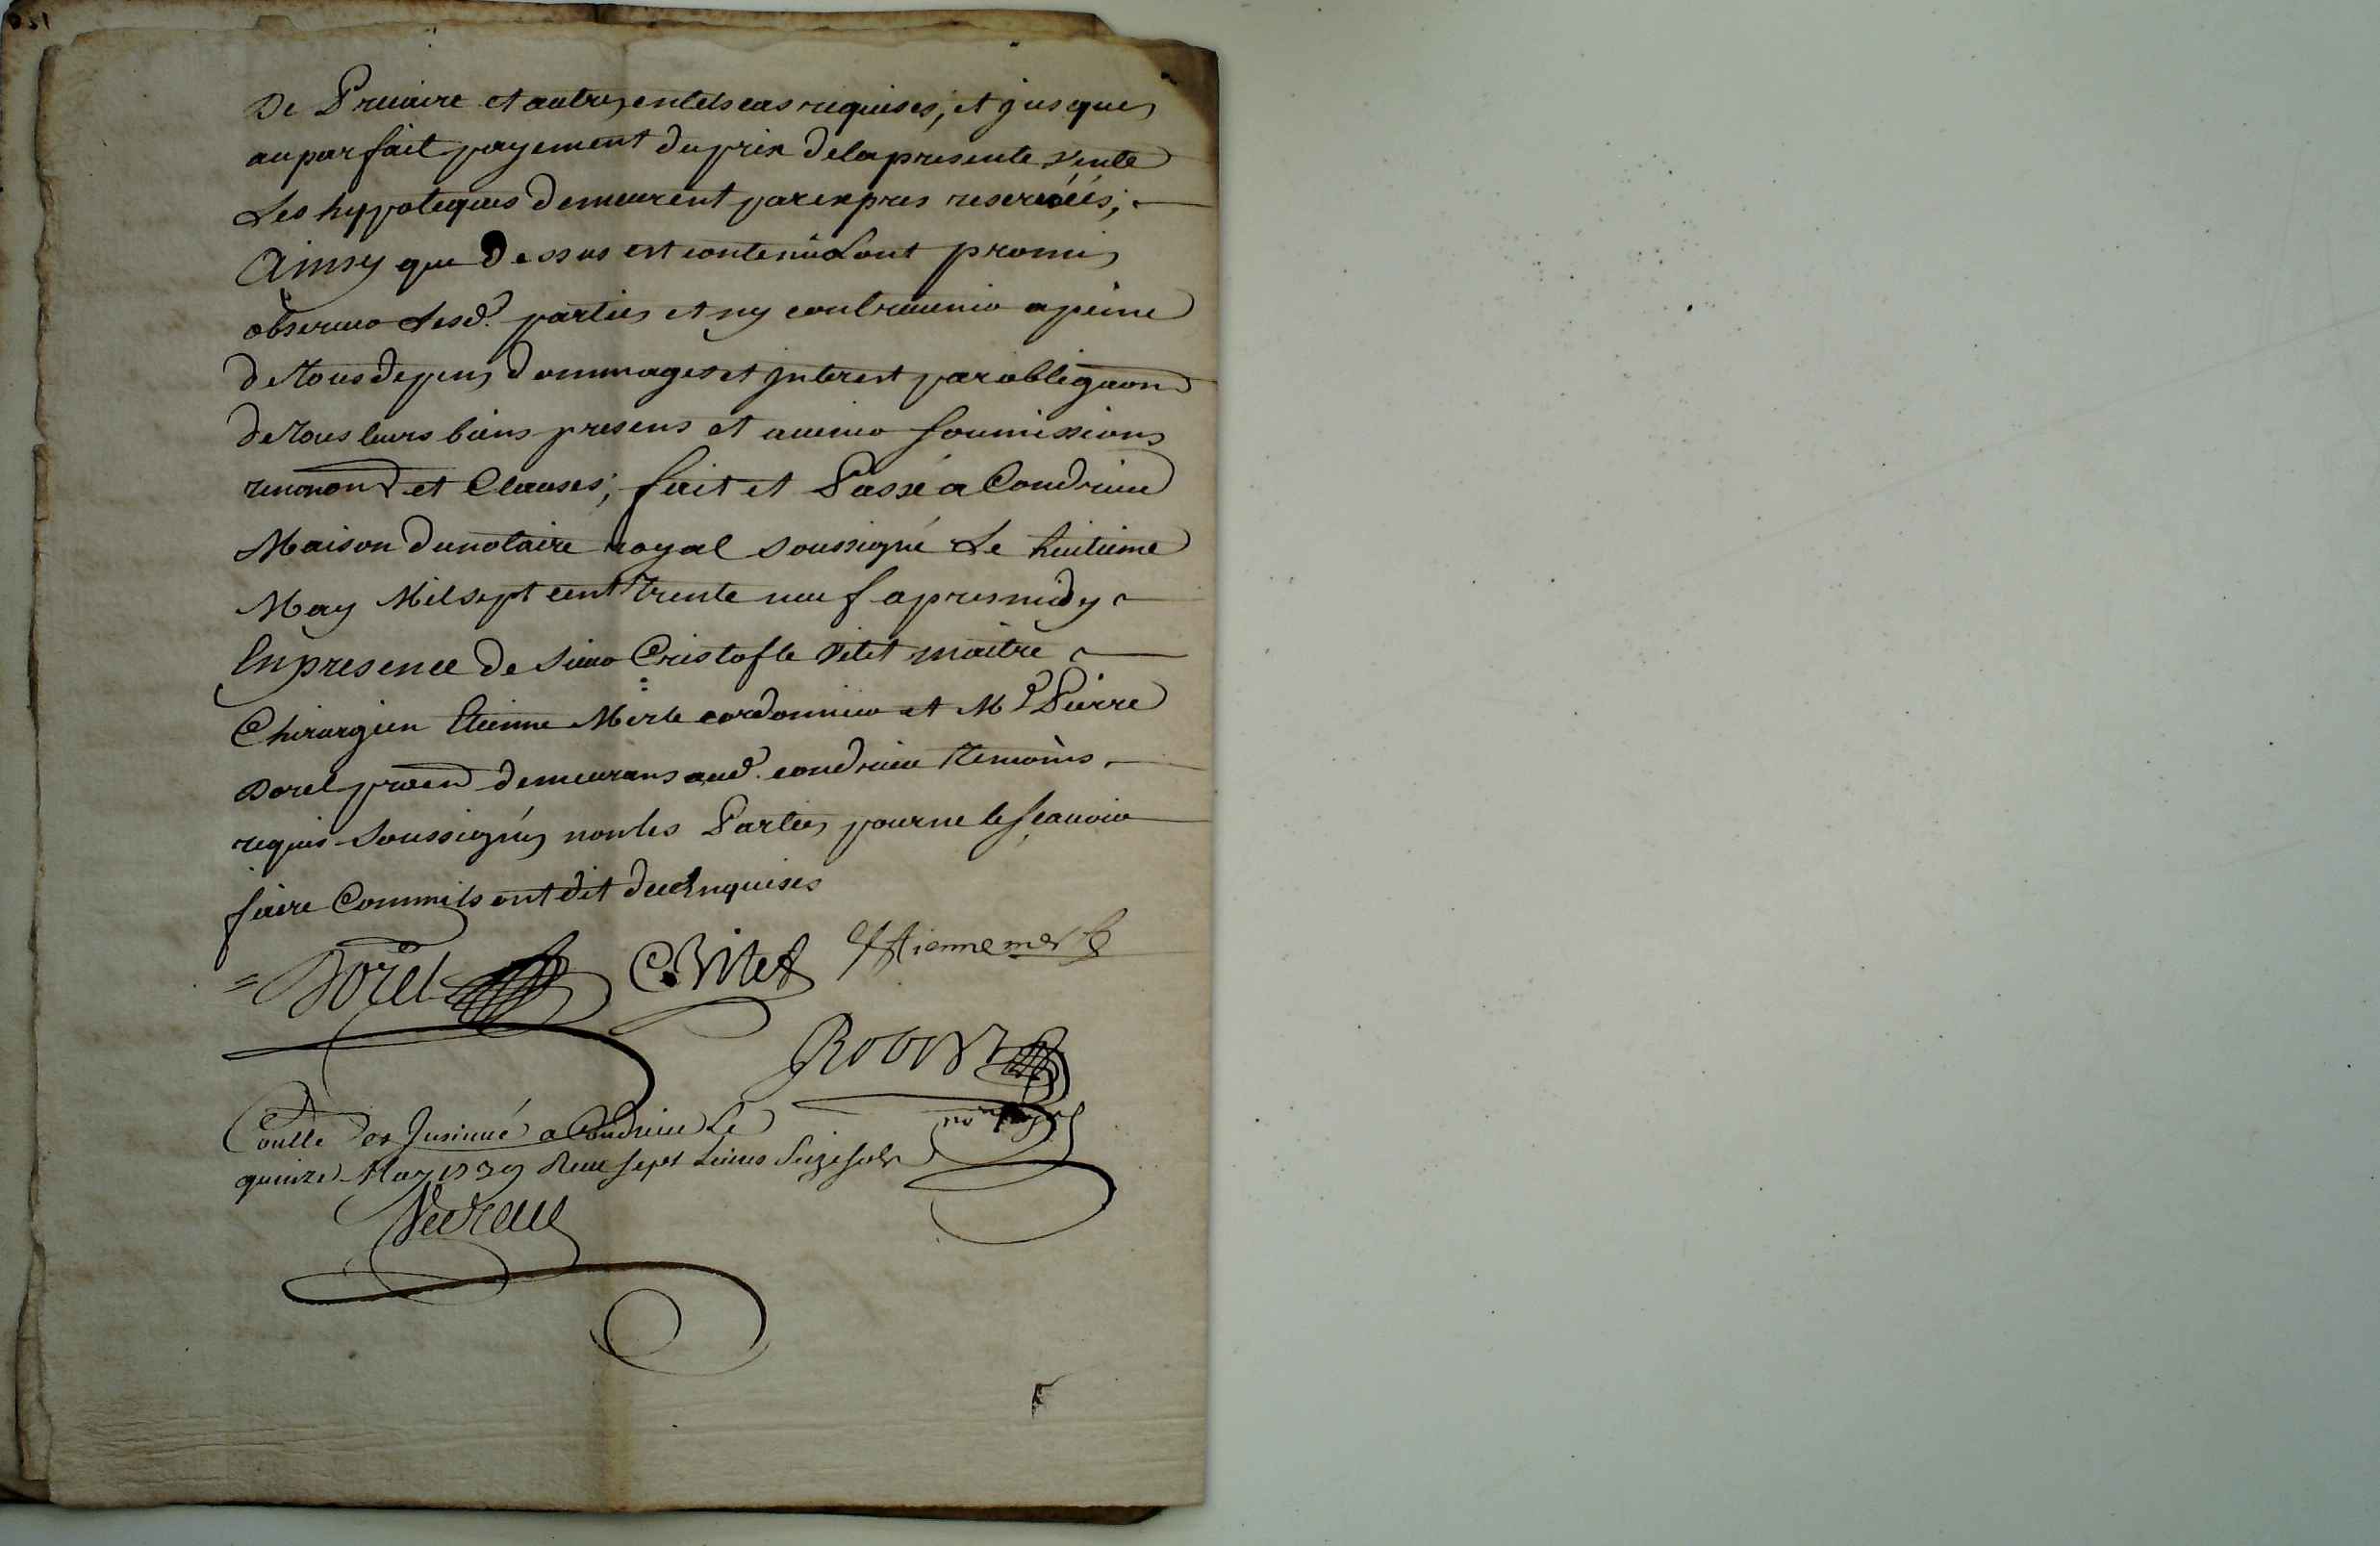 De Precaire et autres entels cas requises, et jusques
au parfait payement du prix de la presente vente
Les hypoteques demeurent par expres reservéés;
Ainsy que dessus est contenu Lont promis
observer Lesd. parties et ny contrevenir a peine
de tous depens dommages et jnterest par obligaon
de tous leurs biens presens et avenir soumissions
renonon et Clauses; fait et Passé a Condrieu
Maison du notaire royal soussigné Le huitieme
May Mil sept cent trente neuf apres midy
En presence de sieur Cristofle Vitet maitre
Chirurgien Etienne Merle cordonnier et Me Pierre
Dorel demeurans aud. condrieu temoins
requis soussignés non les Parties pour ne le sçavoir
faire Comme ils ont dit de ce Enquises
Dorel C. Vitet Estienne merle
Robin
Conllé et Insinué a Condrieu Le
quinze May 1739 Receu sept Livres Seize sols